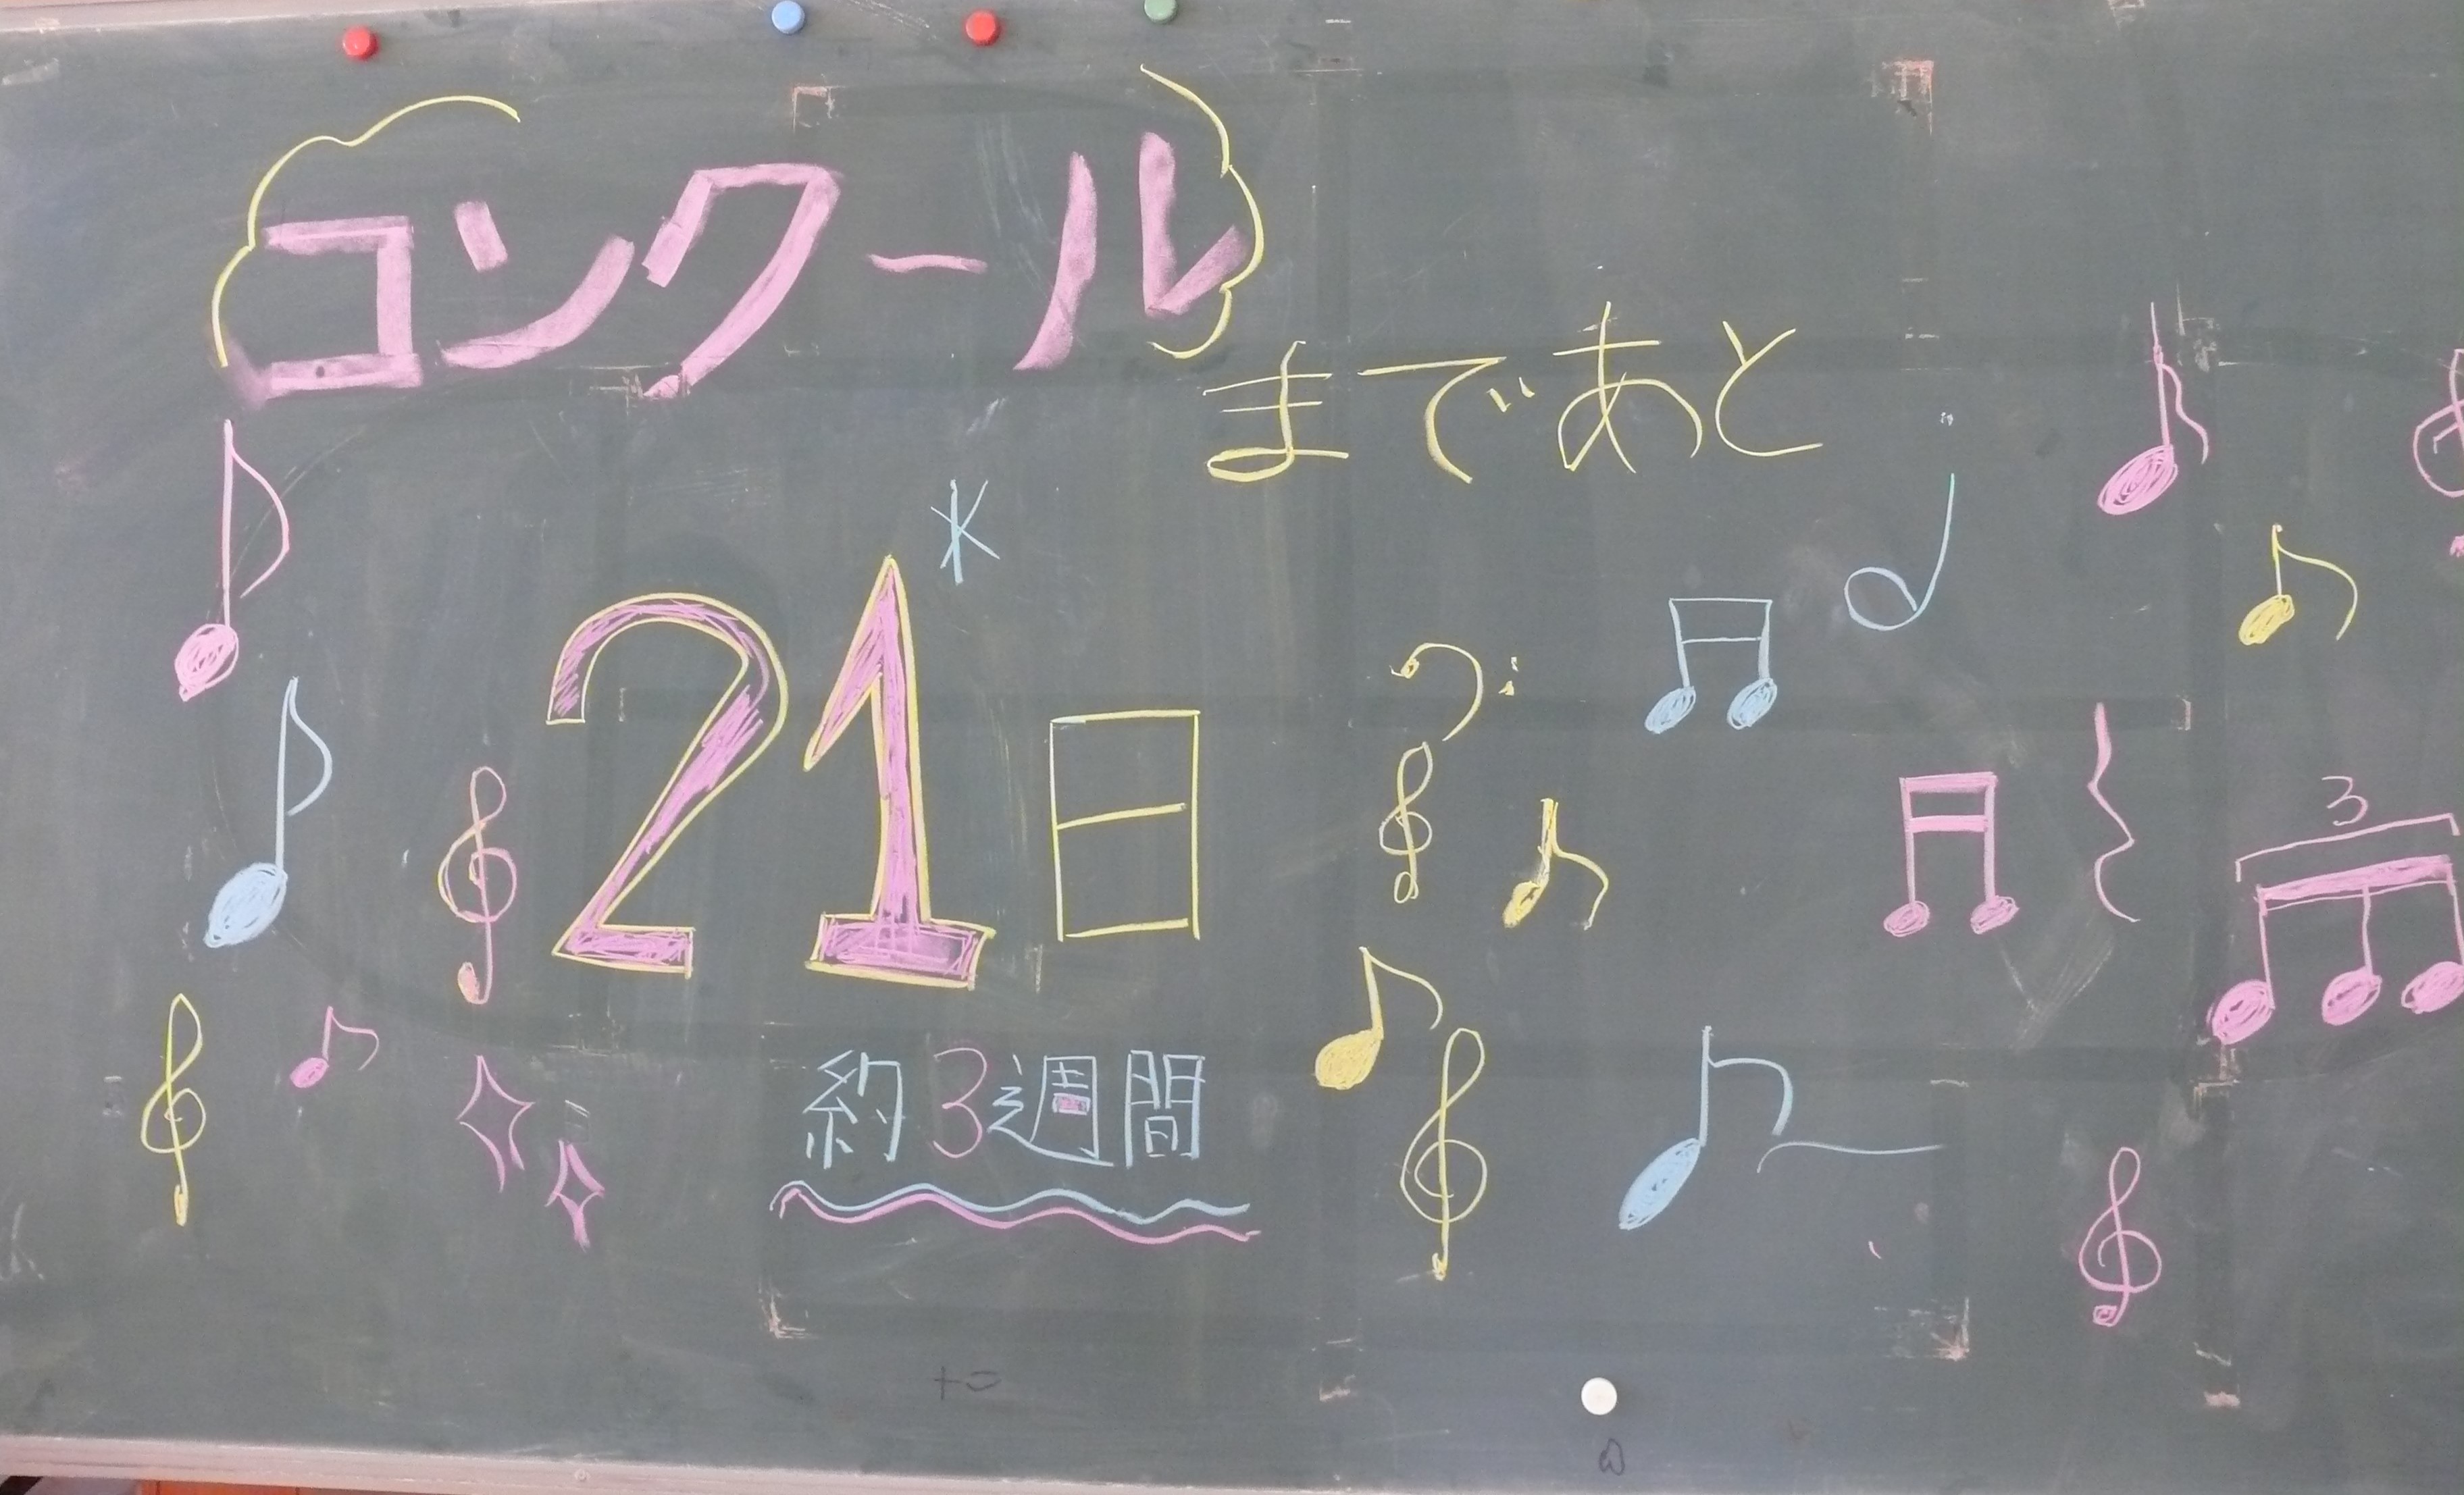 コンクール
まであと
21日
約3週間
3